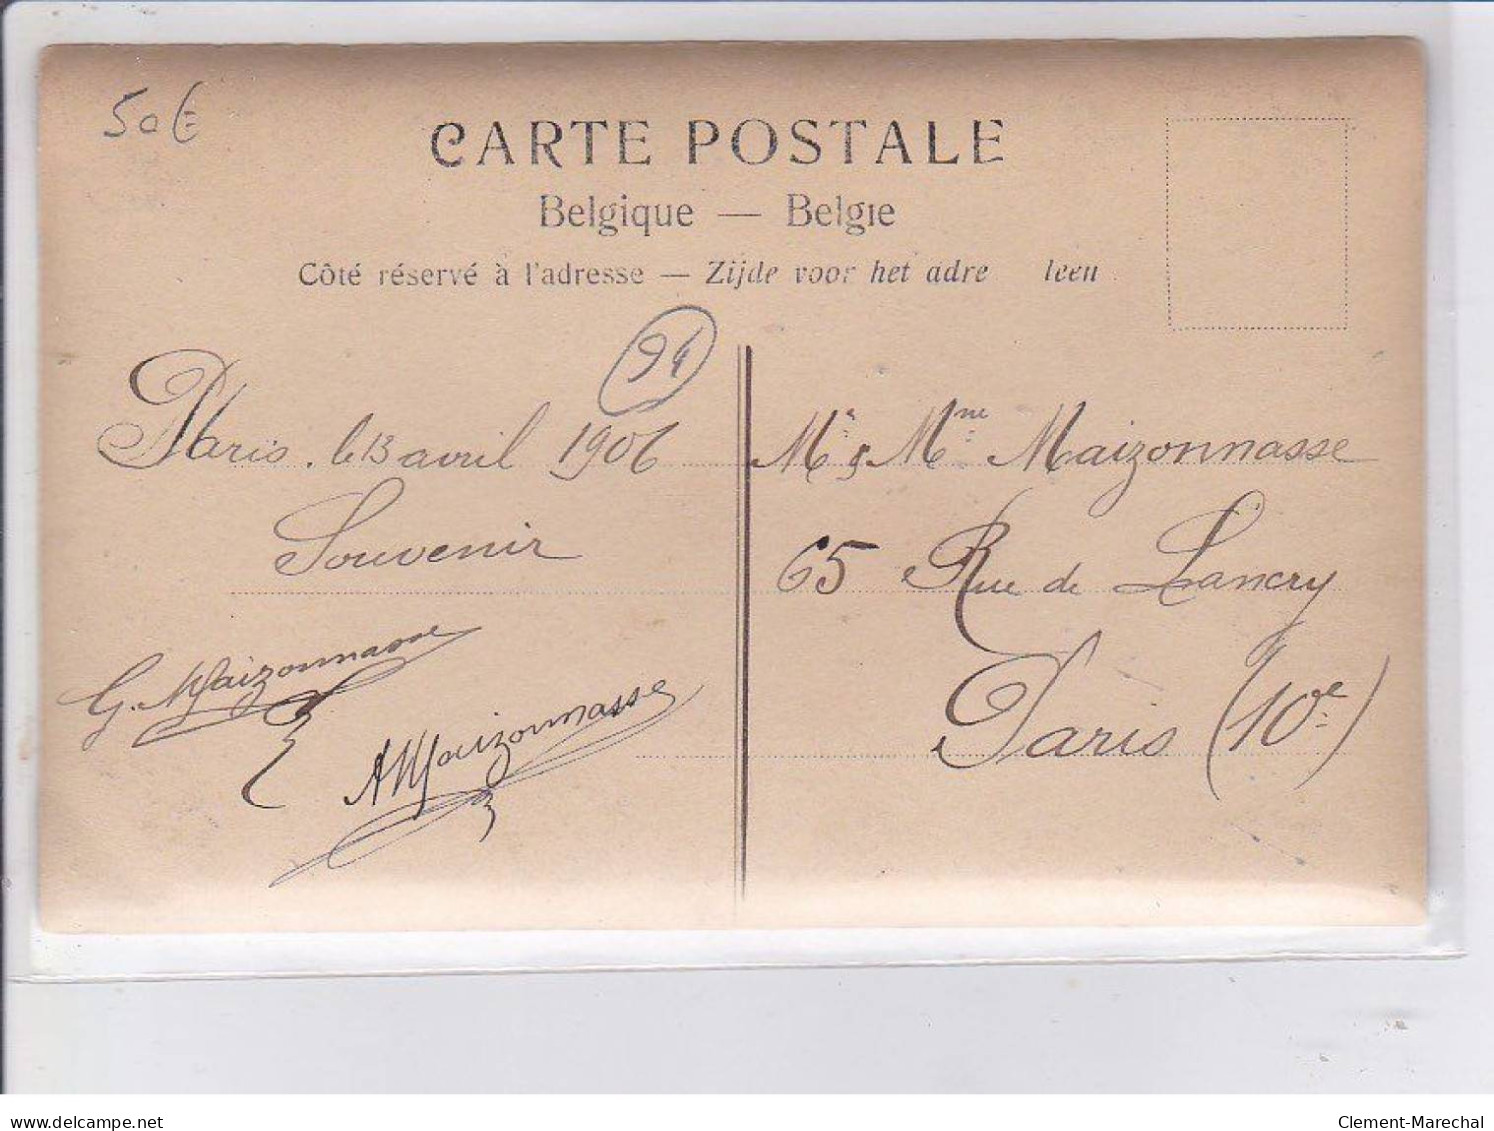 50€
CARTE POSTALE
Belgique — Belgie
Côté réservé à l'adresse — Zijde voor het adre leen
94
Paris. le 13 avril 1906
Souvenir
G. Maizonnasse
A Maizonnasse
Mr & Mme Maizonnasse
65 Rue de Lancry
Paris (10e)
delcampe.net
Clement-Marechal